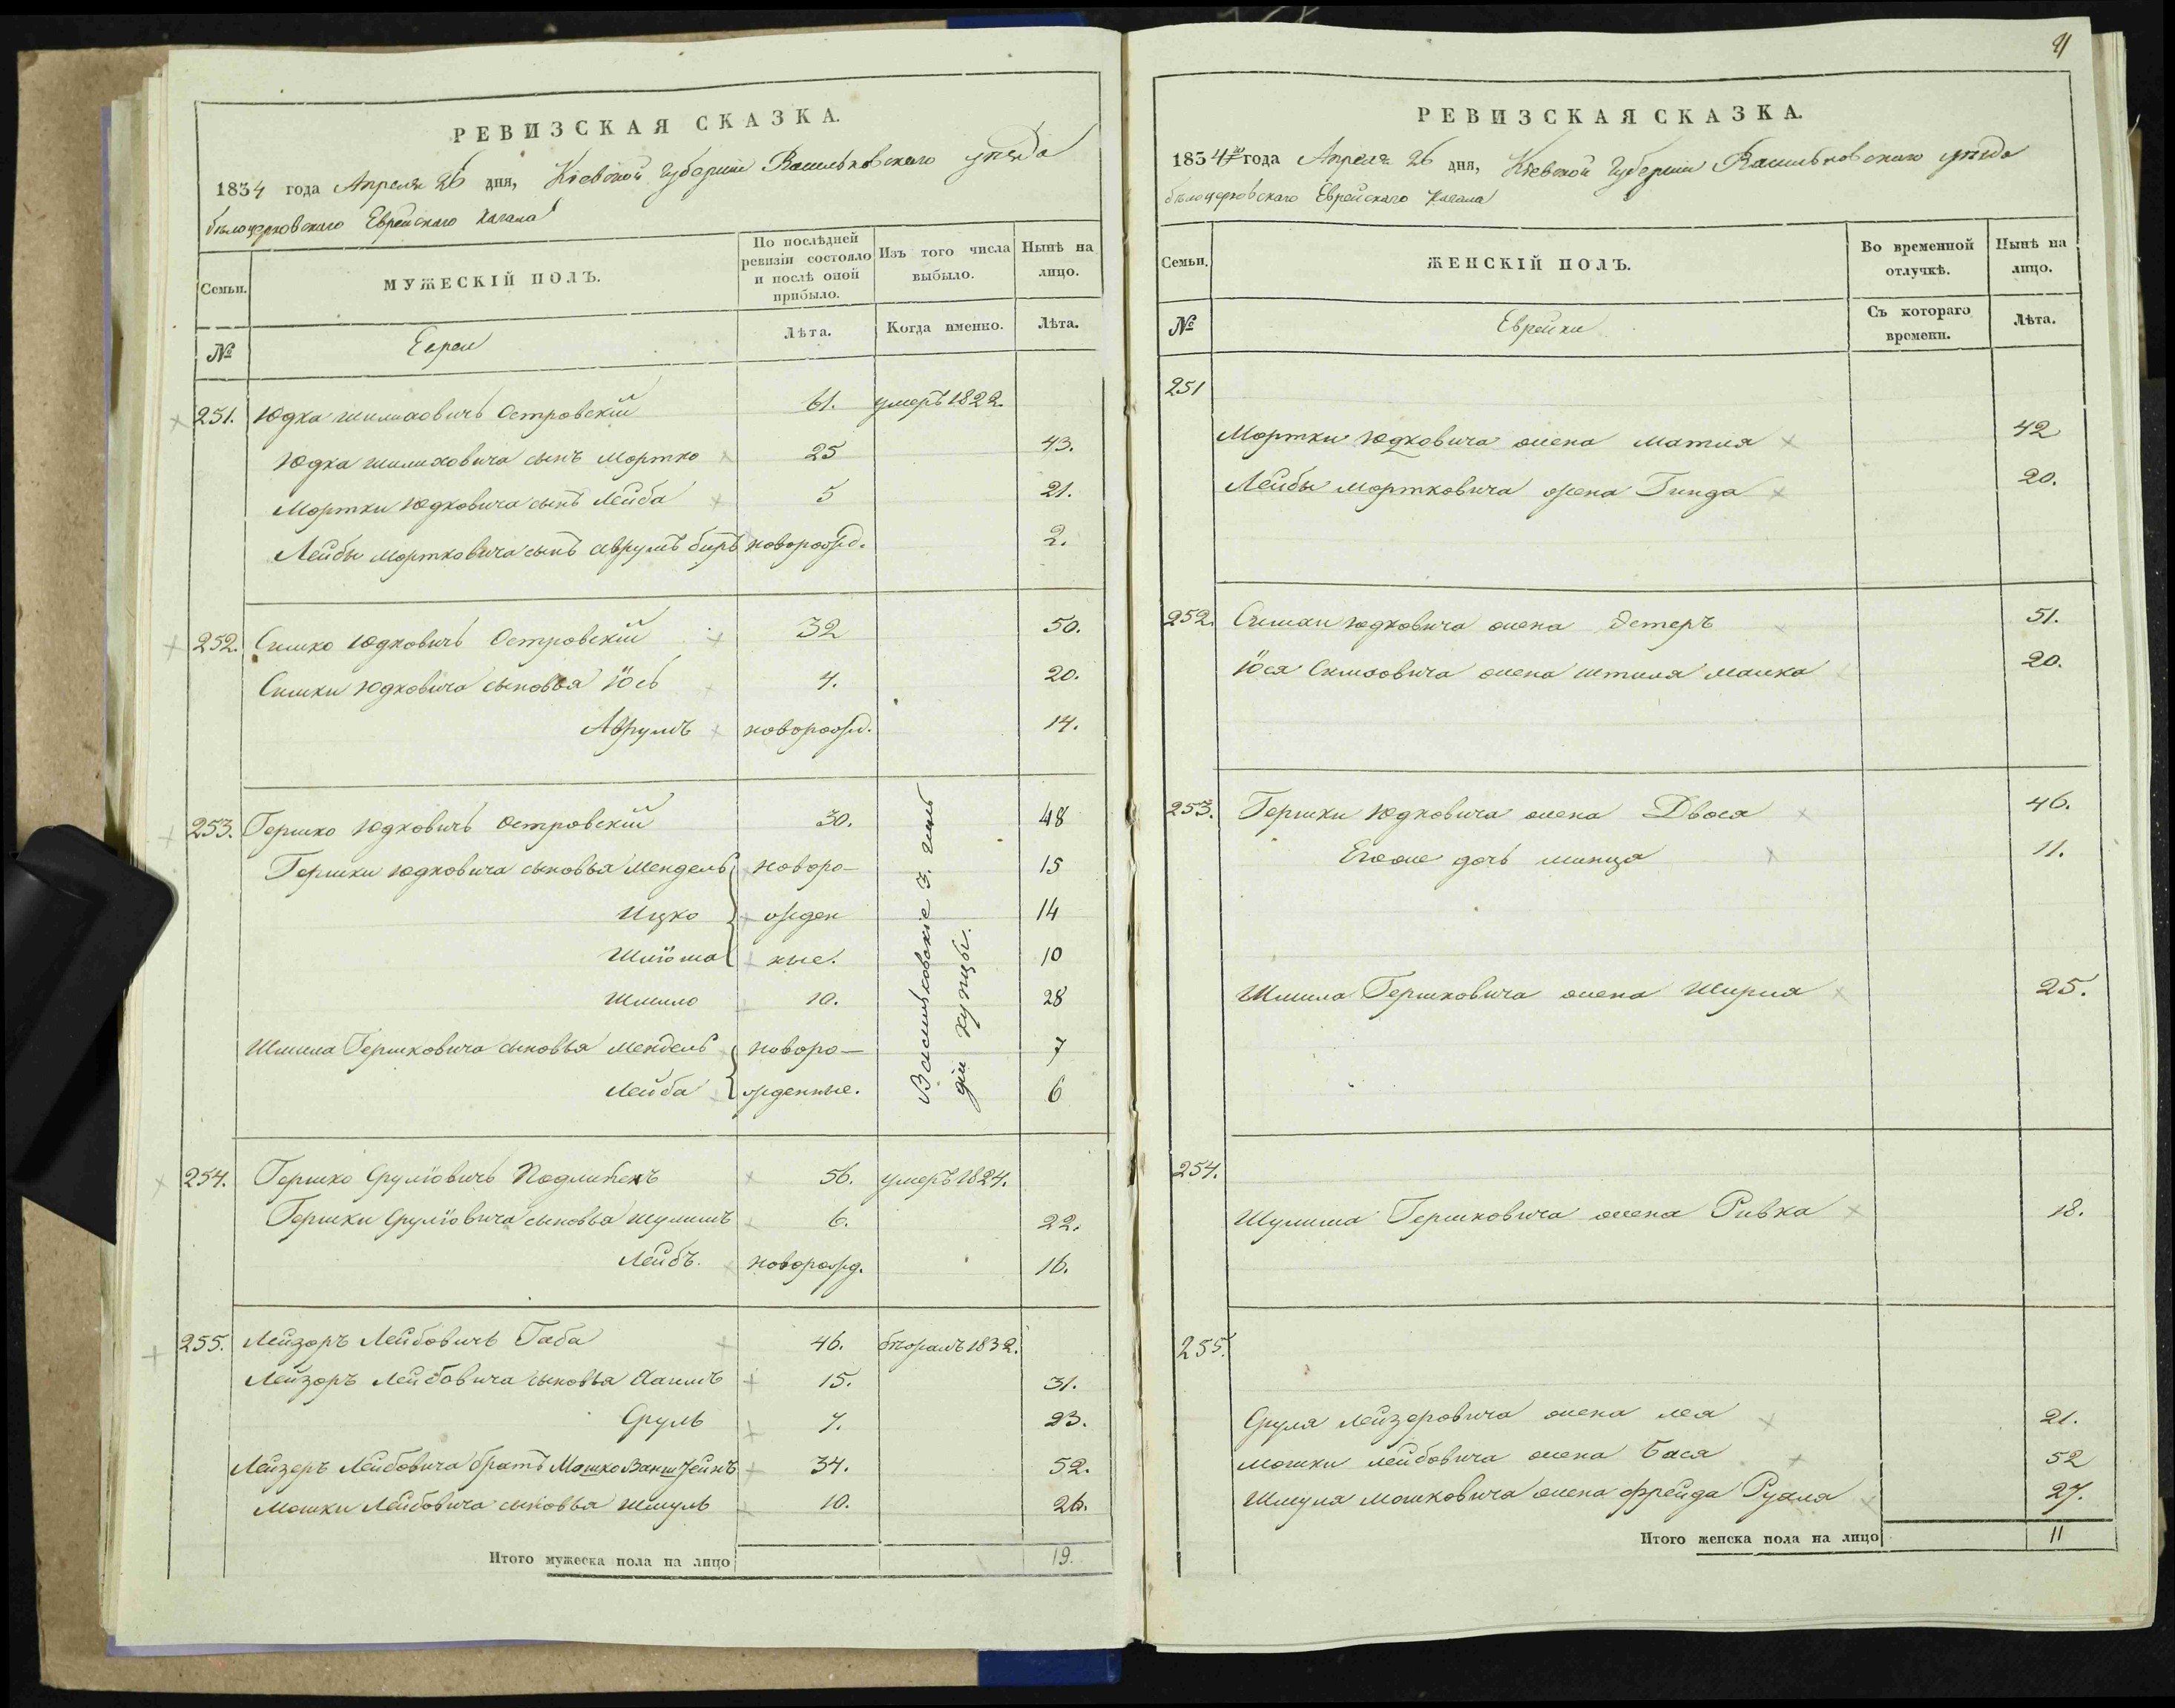 РЕВИЗСКАЯ СКАЗКА.
1834 года Апреля 26 дня, Кіевской Губерніи Васильковскаго уѣзда
бѣлоцерковскаго Еврейскаго Кагала
Семьи.
МУЖЕСКІЙ ПОЛЪ.
По послѣдней ревизіи состояло и послѣ оной прибыло.
Изъ того числа выбыло.
Нынѣ на лицо.
№
Евреи
Лѣта.
Когда именно.
Лѣта.
251. Юдка шмиликовичъ Островскій 61. умеръ 1822
Юдка шмилиховича сынъ Мортко 25 43.
Мортки Юдковича сынъ Лейба 5 21.
Лейбы Мортковича сынъ Аврумъ беръ новорожд. 2.
252. Симко Юдковичъ Островскій 32 50.
Симки Юдковича сыновья Іось 4. 20.
Аврумъ новорожд. 14.
253. Гершко Юдковичъ Островскій 30. 48
Гершки Юдковича сыновья Мендель новоро- 15
Ицко жден 14
Шліома ные. 10
Шмило 10. 28
Шмила Гершковича сыновья Мендель новоро- 7
Лейба жденные. 6
Васильковскіе 3. гиль
діи купцы.
254. Гершко Сруліовичъ Подлипенъ 56. умеръ 1824.
Гершки Сруліовича сыновья шулимъ 6. 22.
Лейбъ. новорожд. 16.
255. Лейзоръ Лейбовичъ Габа 46. бѣжалъ 1832.
Лейзоръ Лейбовича сыновья Хаимъ 15. 31.
Сруль 7. 23.
Лейзеръ Лейбовича братъ Мошко 34. 52.
Мошки Лейбовича сыновья Шмуль 10. 26.
Итого мужеска пола на лицо 19.
РЕВИЗСКАЯ СКАЗКА.
1834 года Апреля 26 дня, Кіевской Губерніи Васильковскаго уѣзда
бѣлоцерковскаго Еврейскаго Кагала
Семьи.
ЖЕНСКІЙ ПОЛЪ.
Во временной отлучкѣ.
Нынѣ на лицо.
№
Еврейки
Съ котораго времени.
Лѣта.
251
Мортки Юдковича жена Матля 42
Лейбы Мортковича жена Гинда 20.
252. Симхи Юдковича жена Эстеръ 51.
Іося Симховича жена Этиля малка 20.
253. Гершки Юдковича жена Двося 46.
Егоже дочь шинца 11.
Шмила Гершковича жена Ширля 25.
254.
Шулима Гершковича жена Ривка 18.
255.
Сруля Лейзеровича жена Лея 21.
Мошки Лейбовича жена Бася 52
Шмуля Мошковича жена фрейда Рухля 27.
Итого женска пола на лицо 11